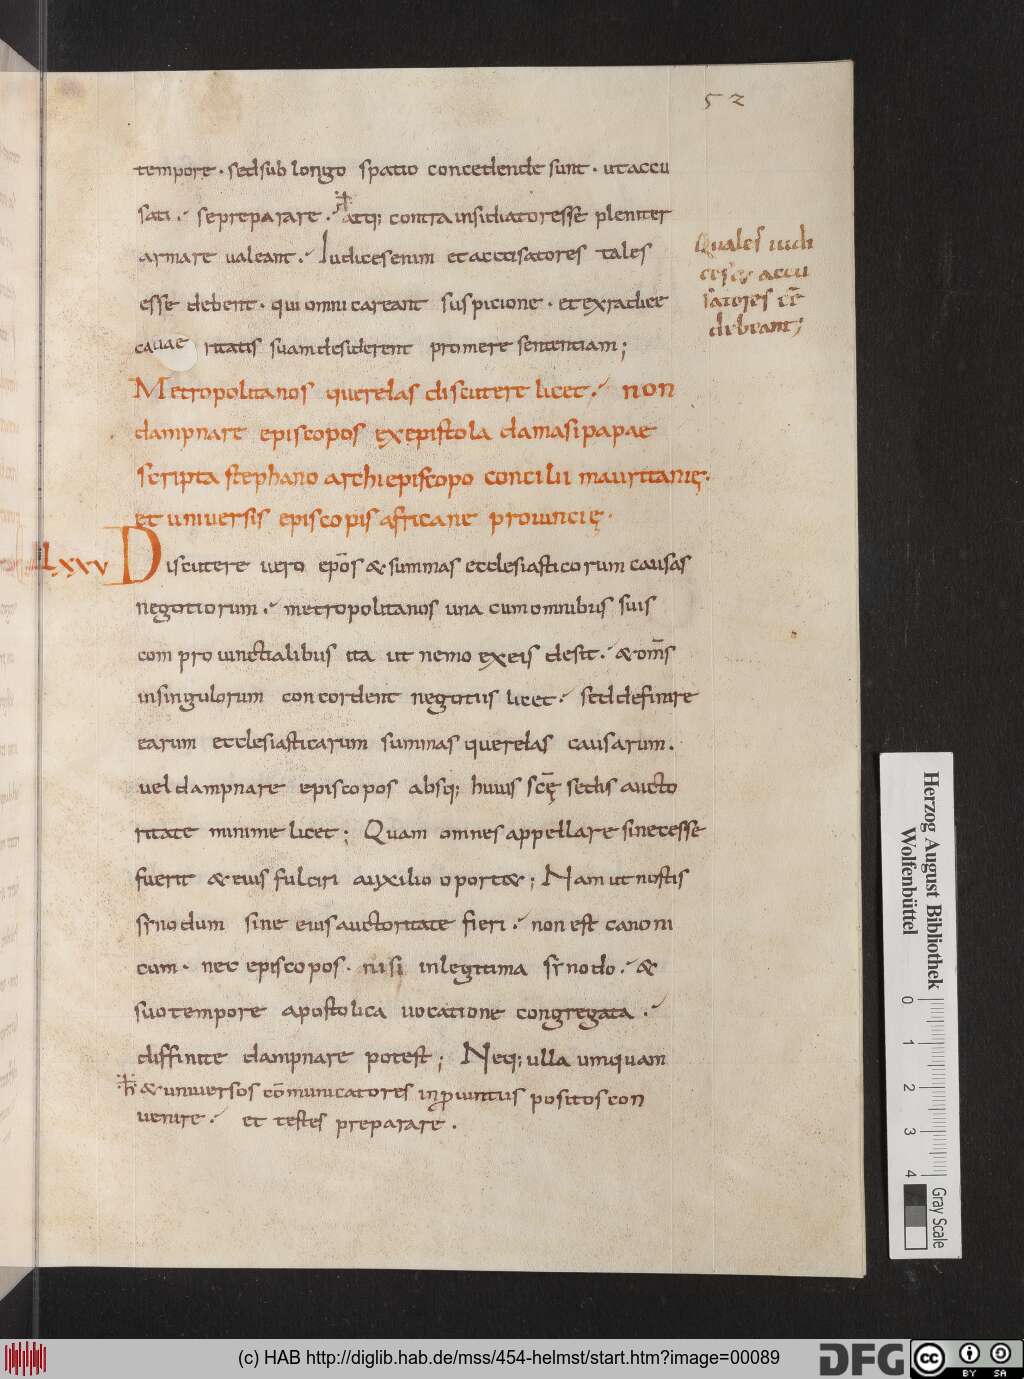 52
tempore · sed sub longo spatio concedende sunt · ut accu
sati · se preparare · atq; contra insidiatores se pleniter
armare valeant · Iudices enim et accusatores tales
esse debent · qui omni careant suspicione · et ex radice
cauae ritatis suam desiderent promere sententiam;
Quales iudi
ces & accu
satores eē
debeant;
Metropolitanos querelas discutere licet · non
dampnare episcopos ex epistola damasi papae
scripta stephano archiepiscopo concilii mauritanię ·
et universis episcopis africane provincię ·
LXXV Discutere vero ep̄os & summas ecclesiasticorum causas
negotiorum · metropolitanos una cum omnibus suis
comprovinctialibus ita ut nemo ex eis desit · & om̄s
in singulorum concordent negotiis licet · sed definire
earum ecclesiasticarum summas querelas causarum ·
vel dampnare episcopos absq; huius sc̄ę sedis aucto
ritate minime licet; Quam omnes appellare si necesse
fuerit & eius fulciri auxilio oport&; Nam ut nostis
synodum sine eius auctoritate fieri · non est canoni
cum · nec episcopos · nisi in legitima synodo · &
suo tempore apostolica vocatione congregata ·
diffinite dampnare potest; Neq; ulla umquam
·h· & universos cōmunicatores in provintiis positos con
venire · et testes preparare ·
Herzog August Bibliothek
Wolfenbüttel
0 1 2 3 4
Gray Scale
(c) HAB http://diglib.hab.de/mss/454-helmst/start.htm?image=00089
DFG
cc BY SA